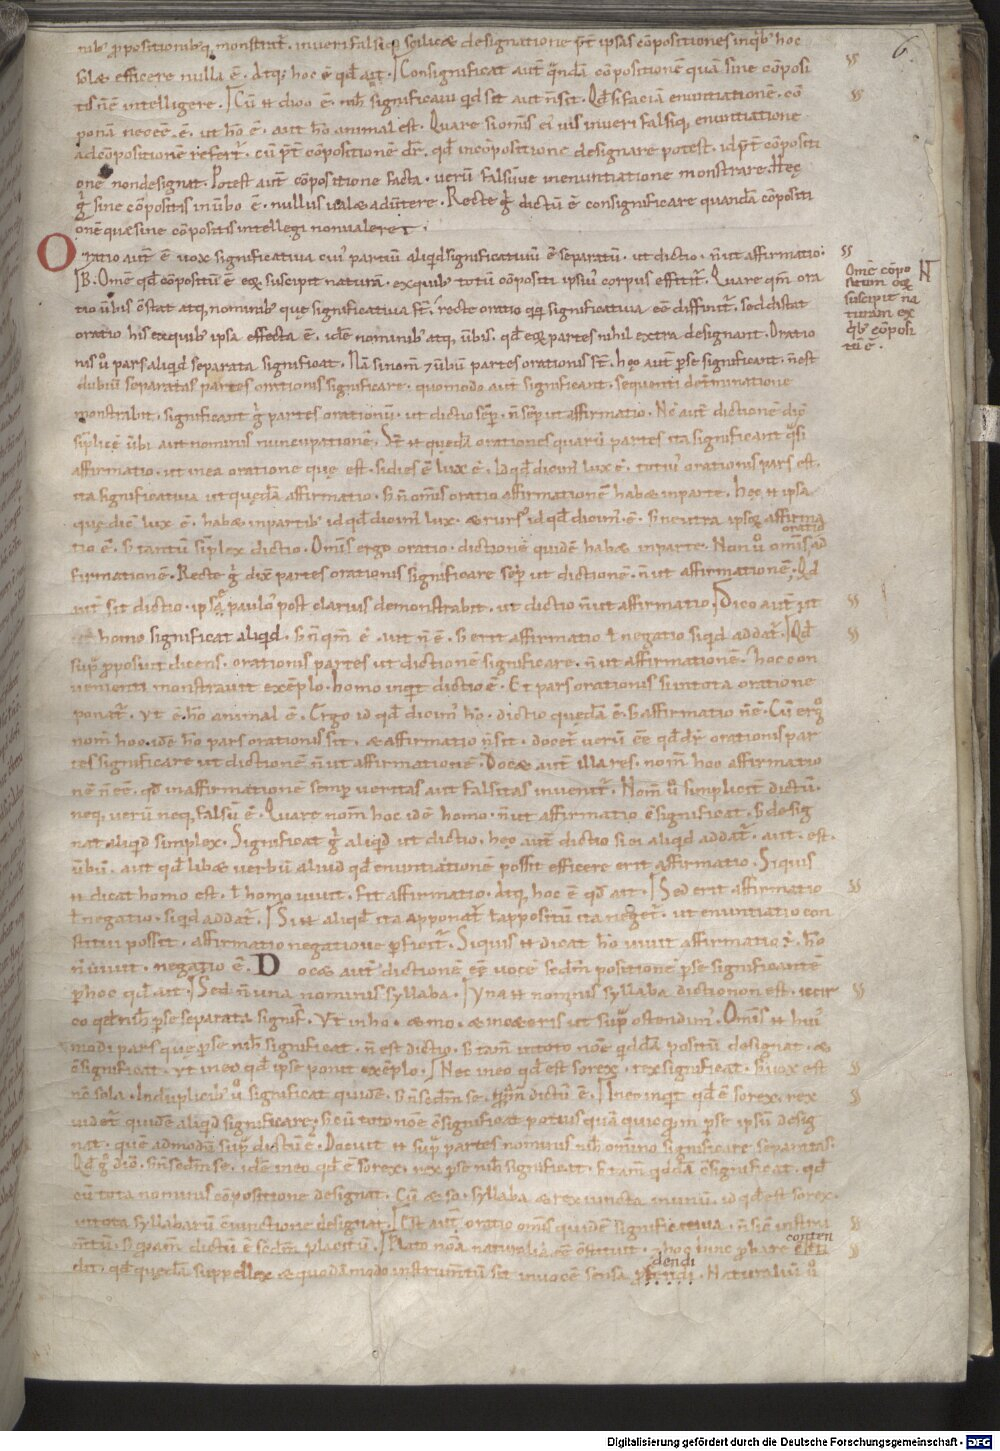 nib; ppositionib;q, monstrat̄. inveri falsiq; scilicæ designatione p̄t ipsas cōpositiones inqb; hoc
uelæ efficere nulla ē. Atq, hoc ē qđ ait. Consignificat aut̄ quandā cōpositionē quā sine cōposi
tis n̄ ē intelligere. Cū n̄ dico ē. nih̄ significaui quid sit aut n̄ sit. Qđ si faciā enuntiationē. cō
ponā necē ē. ut hō ē. aut hō animal est. Quare si omīs ei uis inveri falsiq, enuntiatione
ad cōpositionē refert̄. cū p̄t cōpositionē dr̄. qđ incōpositione designare potest. id p̄t cōpositi
onē non designat. Potest aut̄ cōpositione facta. uerū falsūue in enuntiatione monstrare. Hęc
g̊ sine cōpositis in ūbo ē. nullus ualæ aduertere. Recte g̊ dictū ē consignificare quandā cōpositi
onē quæ sine cōpositis intellegi non ualeret.
Oratio aut̄ ē uox significatiua cui' partiū aliqd significatiuū ē separatū. ut dictio. n̄ ut affirmatio.
B. Omē qđ cōpositū ē eoꝝ suscipit naturā. ex quib; totū cōpositi ipsiu' corpus efficit̄. Quare qm̄ ora
tio ūbis c̄stat atq, nominib; quę significatiua st̄. recte oratio q̄q, significatiua eē diffinit̄. sed distat
oratio his ex quib; ipsa effecta ē. idē nominib; atq, ūbis. qđ eoꝝ partes nihil extra designant. Oratio
nis ů pars aliqd separata significat. Nā si nom̄ & ūbū partes orationis st̄. hęc aut̄ p se significant. n̄ est
dubiū separatas partes orationis significare. quomodo aut̄ significant. sequenti det̄minatione
monstrabit. significant g̊ partes orationū. ut dictio semp. n̄ semp ut affirmatio. Nc̄ aut̄ dictionē dic̄
simplicē ūbi aut nominis nuncupationē. St̄ n̄ quędā orationes quarū partes ita significant quasi
affirmatio. ut in ea oratione quę est. si dies ē lux ē. Id qđ dicim' lux ē. toti' orationis pars est.
ita significatiua ut quędā affirmatio. s̄ n̄ omīs oratio affirmationē habæ in parte. hęc n̄ ipsa
quę dic̄ lux ē. habæ in partib; id qđ dicim' lux. & rurs' id qđ dicim' ē. s̄ neutra ipsaꝝ affirma
tio ē. s̄ tantū simplex dictio. Omīs ergo oratio. dictionē quidē habæ in parte. Non ů omīs oratio ad
firmationē. Recte g̊ dix̄ partes orationis significare semp ut dictionē. n̄ ut affirmationē. Qđ
aut̄ sit dictio. ipse paulo post clarius demonstrabit. ut dictio n̄ ut affirmatio. Dico aut̄ ut
homo significat aliqd. s̄ n̄ qm̄ ē aut n̄ ē. s̄ erit affirmatio ł negatio si qd addat̄. Qđ
supra pposuit dicens. orationis partes ut dictionē significare. n̄ ut affirmationē. hoc con
uenienti monstrauit exēplo. homo inqt dictio ē. Et pars orationis si in tota oratione
ponat̄. Vt ē hō animal ē. Ergo id qđ dicim' hō. dictio quędā ē. s̄ affirmatio n̄ ē. Cū ergo
nom̄ hoc. idē hō pars orationis sit. & affirmatio n̄ sit. docet̄ uerū eē qđ dr̄ orationis par
tes significare ut dictionē n̄ ut affirmationē. Docæ aut̄ illa res. nom̄ hoc affirmatio
nē n̄ eē. qđ in affirmationē semp ueritas aut falsitas inuenit̄. Nom̄ ů simpliciter dictū.
neq, uerū neq, falsū ē. Quare nom̄ hoc idē homo. n̄ ut affirmatio c̄significat. s̄ desig
nat aliqd simplex. Significat g̊ aliqd ut dictio. hęc aut̄ dictio si ei aliqd addat̄. aut. est.
ūbū. aut qđ libæ uerbū aliud qđ enuntiationē possit efficere erit affirmatio. Si quis
n̄ dicat homo est. ł homo uiuit. fit affirmatio. Atq, hoc ē qđ ait. Sed erit affirmatio
ł negatio. si qd addat̄. Si n̄ aliqd ita apponat̄ ł appositū ita neget̄. ut enuntiatio con
stitui possit. affirmatio negatioue pficit̄. Si quis n̄ dicat hō uiuit affirmatio ē. hō
n̄ uiuit. negatio ē. Docæ aut̄ dictionē eē uocē sedm̄ positionē p se significantē
p hoc qđ ait. Sed n̄ una nominis syllaba. Vna n̄ nominis syllaba dictio non est. iccir
co qđ nih̄ p se separata signif̄. Vt in ho. & mo. & in cæteris ut supra ostendim'. Omīs n̄ hui'
modi pars quę p se nih̄ significat. n̄ est dictio. s̄ tam̄ in toto noīe qddā positū designat. &
c̄significat. ut in eo qđ ipse ponit exēplo. Nec in eo qđ est sorex. rex significat. s̄ uox est
n̄c sola. In duplicib; ů significat quidē. s̄ n̄ sedm̄ se. quēadm̄ dictū ē. In eo inqt qđ ē sorex. rex
uidet̄ quidē aliqd significare; s̄ cū toto noīe c̄significat potius quā quicquam p se ipsū desig
nat. quē admodū supra dictū ē. Docuit n̄ supra partes nominis nih̄ omīno significare separatas.
Qđ g̊ dic̄. s̄ n̄ sedm̄ se. idē in eo qđ ē sorex. rex p se nih̄ significat. s̄ tam̄ qddā c̄significat. qđ
cū tota nominis cōpositione designat. Cū & so. syllaba & rex iuncta in unū. id qđ est sorex.
in tota syllabarū c̄iunctione designat. Est aut̄ oratio omīs quidē significatiua. n̄ sic̄ instru
m̄tū. s̄ quēadm̄ dictū ē sedm̄ placitū. Plato noīa naturalia eē c̄stituit. & hoc hinc pbare conten
dit. qđ quędā suppellex & quodāmodo instrum̄tū sit in uocē sensa pferendi. Naturaliū ů
6.
Omē cōpo
situm eoꝝ
suscipit na
turam ex
qb; cōposi
tū ē.